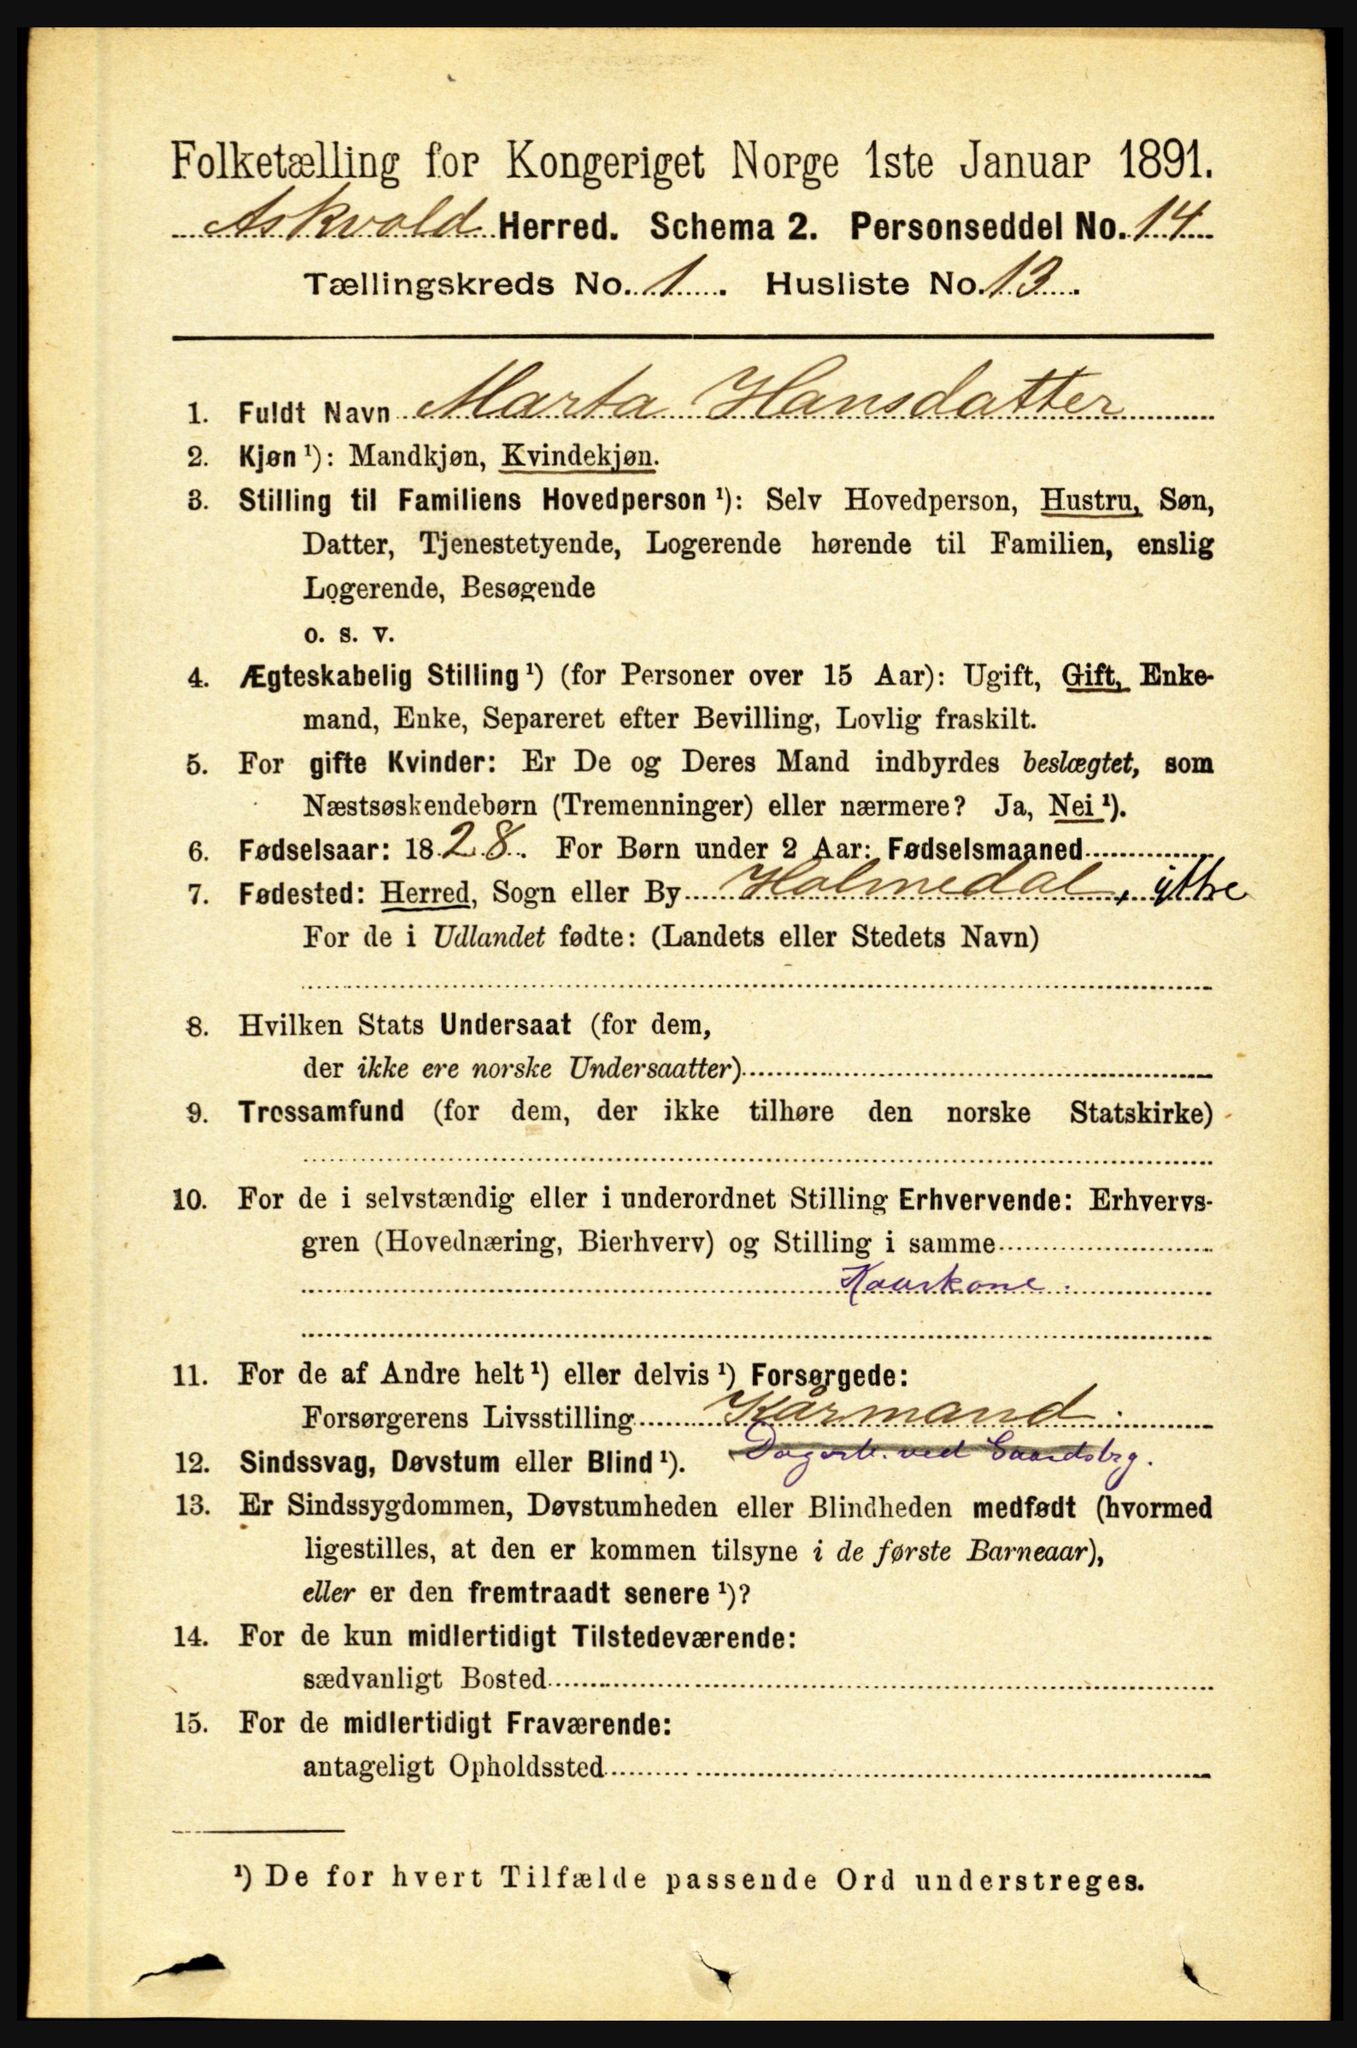 Folketælling for Kongeriget Norge 1ste Januar 1891.
Askvold Herred. Schema 2. Personseddel No. 14
Tællingskreds No. 1. Husliste No. 13.
1. Fuldt Navn Marta Hansdatter
2. Kjøn ¹): Mandkjøn, Kvindekjøn.
3. Stilling til Familiens Hovedperson ¹): Selv Hovedperson, Hustru, Søn,
Datter, Tjenestetyende, Logerende hørende til Familien, enslig
Logerende, Besøgende
o. s. v.
4. Ægteskabelig Stilling ¹) (for Personer over 15 Aar): Ugift, Gift, Enke-
mand, Enke, Separeret efter Bevilling, Lovlig fraskilt.
5. For gifte Kvinder: Er De og Deres Mand indbyrdes beslægtet, som
Næstsøskendebørn (Tremenninger) eller nærmere? Ja, Nei ¹).
6. Fødselsaar: 1828. For Børn under 2 Aar: Fødselsmaaned
7. Fødested: Herred, Sogn eller By Holmedal, ytre
For de i Udlandet fødte: (Landets eller Stedets Navn)
8. Hvilken Stats Undersaat (for dem,
der ikke ere norske Undersaatter)
9. Trossamfund (for dem, der ikke tilhøre den norske Statskirke)
10. For de i selvstændig eller i underordnet Stilling Erhvervende: Erhvervs-
gren (Hovednæring, Bierhverv) og Stilling i samme
Kaarkone.
11. For de af Andre helt ¹) eller delvis ¹) Forsørgede:
Forsørgerens Livsstilling Kårmand.
12. Sindssvag, Døvstum eller Blind ¹). Dagarb. ved Gaardsbrg.
13. Er Sindssygdommen, Døvstumheden eller Blindheden medfødt (hvormed
ligestilles, at den er kommen tilsyne i de første Barneaar),
eller er den fremtraadt senere ¹)?
14. For de kun midlertidigt Tilstedeværende:
sædvanligt Bosted
15. For de midlertidigt Fraværende:
antageligt Opholdssted
¹) De for hvert Tilfælde passende Ord understreges.